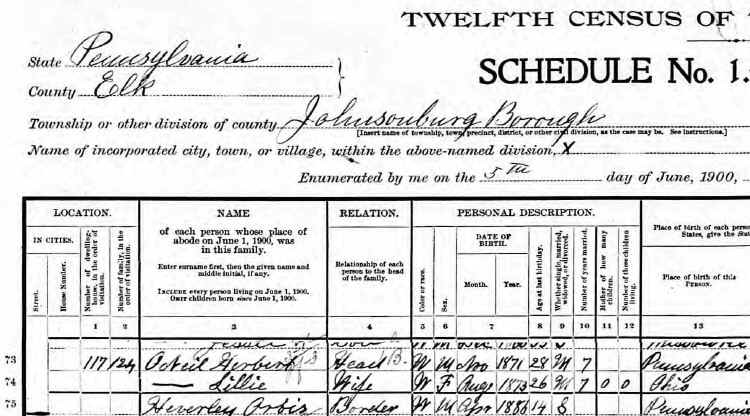 TWELFTH CENSUS OF
State Pennsylvania
County Elk
SCHEDULE No. 1.
Township or other division of county Johnsonburg Borough
[Insert name of township, town, precinct, district, or other civil division, as the case may be. See instructions.]
Name of incorporated city, town, or village, within the above-named division, X
Enumerated by me on the 5th day of June, 1900,
LOCATION.
IN CITIES.
Street.
House Number.
Number of dwelling-house, in the order of visitation.
Number of family, in the order of visitation.
NAME
of each person whose place of abode on June 1, 1900, was in this family.
Enter surname first, then the given name and middle initial, if any.
INCLUDE every person living on June 1, 1900.
OMIT children born since June 1, 1900.
RELATION.
Relationship of each person to the head of the family.
PERSONAL DESCRIPTION.
Color or race.
Sex.
DATE OF BIRTH.
Month.
Year.
Age at last birthday.
Whether single, married, widowed, or divorced.
Number of years married.
Mother of how many children.
Number of these children living.
Place of birth of each
States, give the
Place of birth of this PERSON.
1 2 3 4 5 6 7 8 9 10 11 12 13
73 117 124 O'Neil Herbert Head B. W M Nov 1871 28 M 7 Pennsylvania
74 — Lillie Wife W F Aug 1873 26 M 7 0 0 Ohio
75 Heverley Orbis Border W M Apr 1886 14 S Pennsylvania